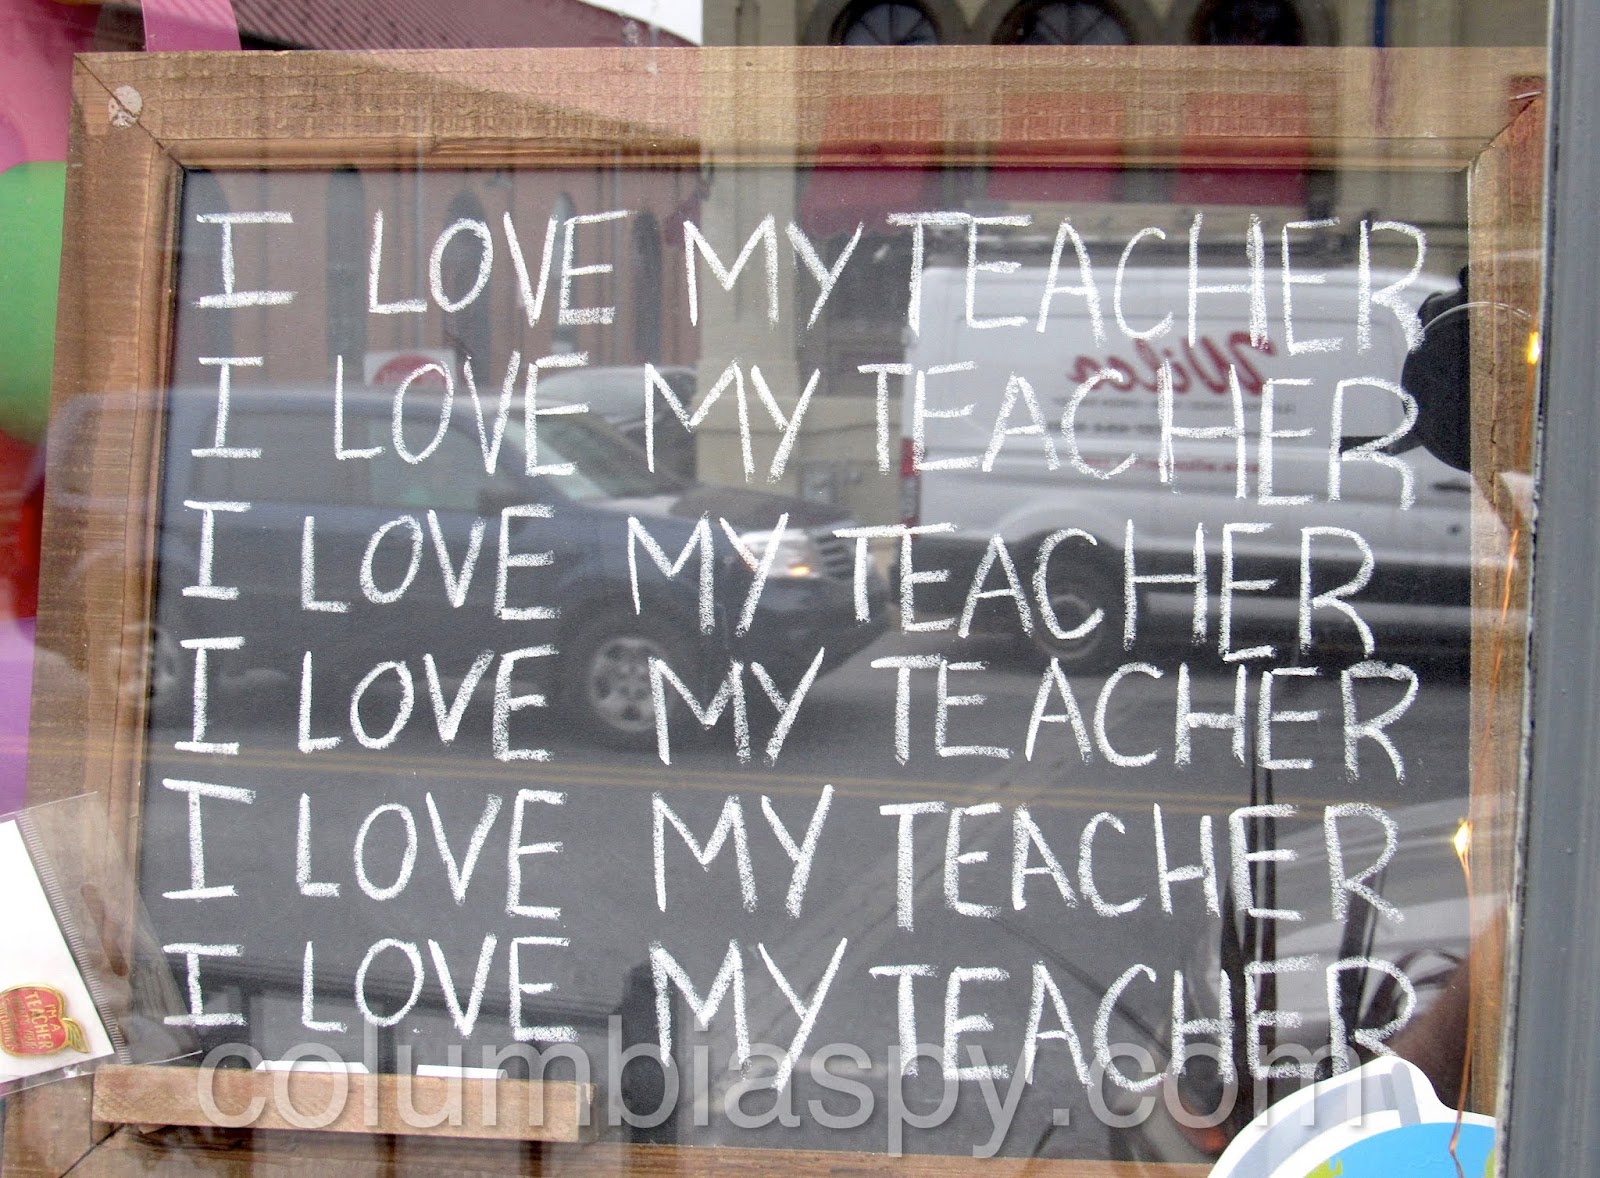 I LOVE MY TEACHER
I LOVE MY TEACHER
Wilca
I LOVE MY TEACHER
I LOVE MY TEACHER
I LOVE MY TEACHER
I LOVE MY TEACHER
I'M A
TEACHER
columbiaspy.com